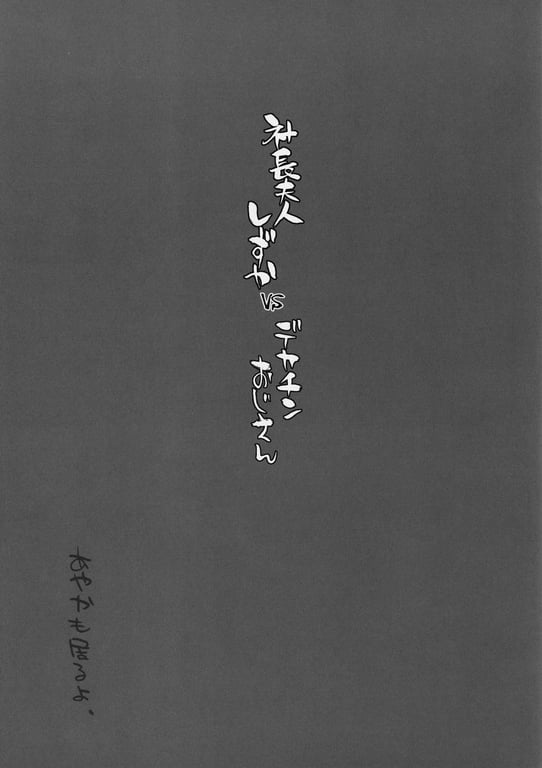 社長夫人
しずか
VS
デカチン
おじさん
あやかも居るよ。